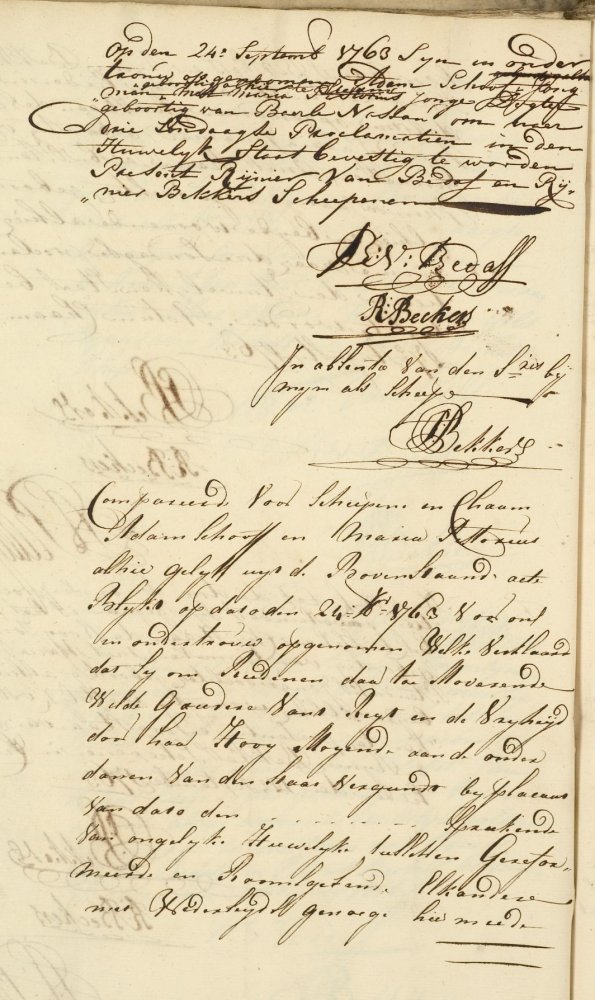 Op den 24e September 1763 Syn in onder
trouw opgenomen Adam Schooff Jong
geboortig alhier te
man met Maria Pistorius jonge Dogter
geboortig van Baerle Nassau om naer
drie Sondaagse Proclamatien in den
Huwelijk Staat bevestig te worden
Present Rynier Van Bedaf en Ry,,
nier Bekkers Scheepenen
R: V: Bedaff
R: Beckers
In absentia Van den Sris by
myn als Scheepe
Bekkers
Compareerde Voor Scheepenen in Chaam
Adam Schooff en Maria Pistorius
alhier gelyk uyt de Bovenstaande acte
Blykt op dato den 24: 7br 1763 Voor ons
in ondertrouw opgenomen Welke Verklaard
dat Sy om Reedenen daar toe Moverende
Wilde Gauderen Vant Regt en de Vryheyd
door haar Hoog Mogende aan de onder
danen Van den Staat Vergundt by placaat
van dato den . . . . . . . . . . Sprekende
Van ongelyke Huwelyke tusschen Gerefor,,
meerde en Roomsgesinde Elkandere
met Wedersydse genoege hier meede